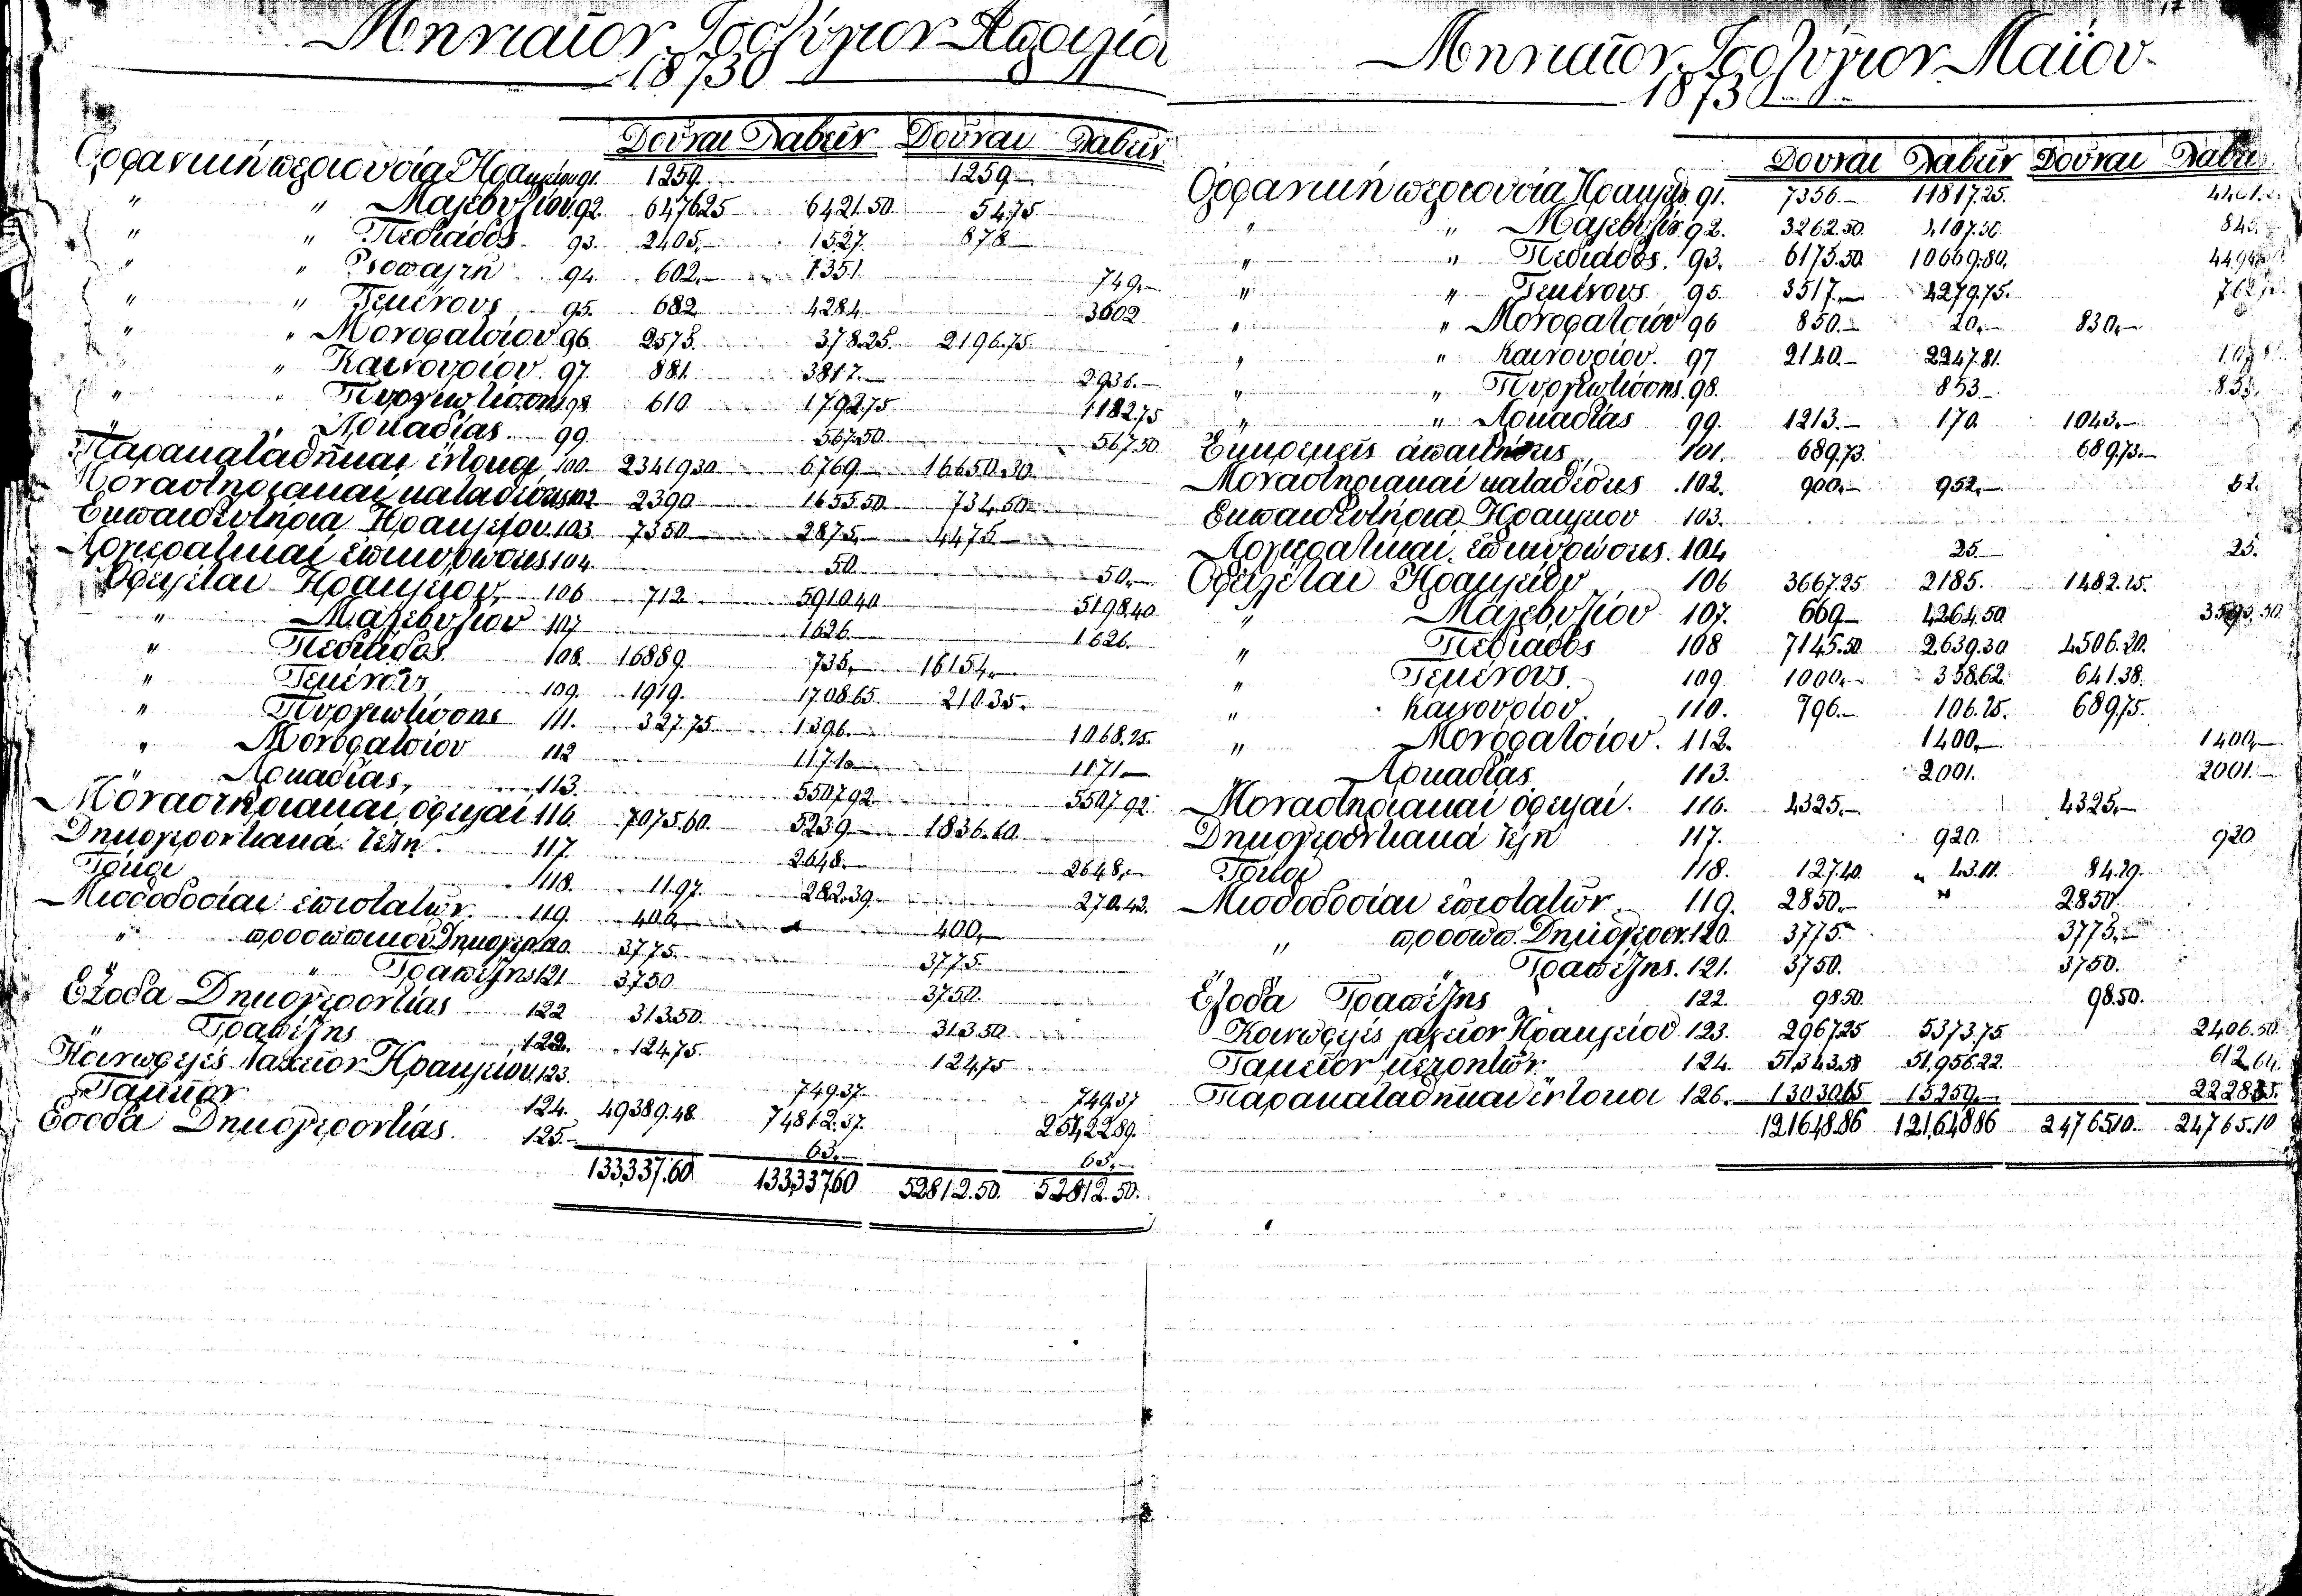 Μηνιαῖον Ἰσοζύγιον Ἀπριλίο
1873
Δοῦναι Λαβεῖν Δοῦναι Λαβεῖν
Ὀρφανικὴ περιουσία Ἡρακλείου 91. 1259. 1259.—
" " Μαλεβυζίου 92. 6476.25 6421.50. 54.75
" " Πεδιάδος 93. 2405.— 1527. 878.—
" " 94. 602.— 1351 749.—
" " Τεμένους 95. 682. 4284. 3602
" " Μονοφατσίου 96 2575. 378.25. 2196.75
" " Καινουρίου 97. 881. 3817.— 2936.—
" " Πυργιωτίσσης 98 610 1792.75 1182.75
" " Ἀρκαδίας 99. 567.50 567.50
Παρακαταθῆκαι ἔντοκοι 100. 23419.30 6769.— 16650.30
Μοναστηριακαὶ καταθέσεις 102. 2390 1655.50 734.50
Ἐκπαιδευτήρια Ἡρακλείου 103. 7350.— 2875.— 4475.—
Ἀρχιερατικαὶ ἐπικυρώσεις 104. 50 50.—
Ὀφειλέται Ἡρακλείου 106 712 5910.40 5198.40
" Μαλεβυζίου 107 1626.— 1626.—
" Πεδιάδος 108. 16889. 735.— 16154.—
" Τεμένους 109. 1919. 1708.65 210.35.
" Πυργιωτίσσης 111. 327.75 1396.— 1068.25.
" Μονοφατσίου 112 1171.— 1171.—
" Ἀρκαδίας, 113. 5507.92 5507.92.
Μοναστηριακαὶ ὀφειλαὶ 116. 7075.60. 5239.— 1836.60
Δημογεροντιακὰ τέλη. 117. 2648.— 2648.—
Τόκοι 118. 11.97. 282.39. 270.42.
Μισθοδοσίαι ἐπιστατῶν. 119. 400.— 400.—
" προσωπικοῦ Δημογερ. 120. 3775. 3775.
" " Τραπέζης 121 3750 3750.
Ἔξοδα Δημογεροντίας 122 313.50. 313.50
" Τραπέζης 122. 124.75. 124.75
Κοινωφελὲς λαχεῖον Ἡρακλείου 123. 749.37. 749.37
Ταμεῖον 124. 49389.48. 74812.37. 25422.89.
Ἔσοδα Δημογεροντίας. 125.— 63.— 63.—
133,337.60 133,337.60 52812.50. 52812.50.
17
Μηνιαῖον Ἰσοζύγιον Μαΐου
1873
Δοῦναι Λαβεῖν Δοῦναι Λαβεῖ
Ὀρφανικὴ περιουσία Ἡρακλείο 91. 7356.— 11817.25. 4461.2
" " Μαλεβυζίο 92. 3262.50. 4107.50. 845.
" " Πεδιάδος. 93. 6175.50. 10669.80.
" " Τεμένους 95. 3517.— 4279.75. 762.
" " Μονοφατσίου 96 850.— 20.— 830.—
" " Καινουρίου. 97 2140.— 2247.81.
" " Πυργιωτίσσης. 98. 853.— 853.
" " Ἀρκαδίας 99. 1213.— 170. 1043.—
Ἐκκρεμεῖς ἀπαιτήσεις 101. 689.73. 689.73.—
Μοναστηριακαὶ καταθέσεις 102. 900.— 952.— 52.
Ἐκπαιδευτήρια Ἡρακλείου 103.
Ἀρχιερατικαὶ ἐπικυρώσεις. 104 25.— 25.
Ὀφειλέται Ἡρακλείου 106 3667.25 2185. 1482.25.
" Μαλεβυζίου 107. 669.— 4264.50. 3595.50.
" Πεδιάδος 108 7145.50 2639.30 4506.20.
" Τεμένους. 109. 1000.— 358.62. 641.38.
" Καινουρίου. 110. 796.— 106.25. 689.75.
" Μονοφατσίου. 112. 1400.— 1400.—
" Ἀρκαδίας 113. 2001. 2001.—
Μοναστηριακαὶ ὀφειλαί. 116. 4325.— 4325.—
Δημογεροντιακὰ τέλη 117. 920. 920
Τόκοι 118. 127.40. 43.11. 84.29.
Μισθοδοσίαι ἐπιστατῶν 119. 2850.— " 2850.
" προσωπ. Δημογερον. 120. 3775.— 3775.—
" Τραπέζης. 121. 3750. 3750.
Ἔξοδα Τραπέζης 122. 98.50. 98.50.
Κοινωφελὲς λαχεῖον Ἡρακλείου 123. 2967.25 5373.75. 2406.50.
Ταμεῖον μετρητῶν. 124. 51,343.58 51,956.22. 612.64.
Παρακαταθῆκαι ἔντοκοι 126. 13030.65 15259.— 2228.35.
121648.86 121,648.86 24765.10. 24765.10